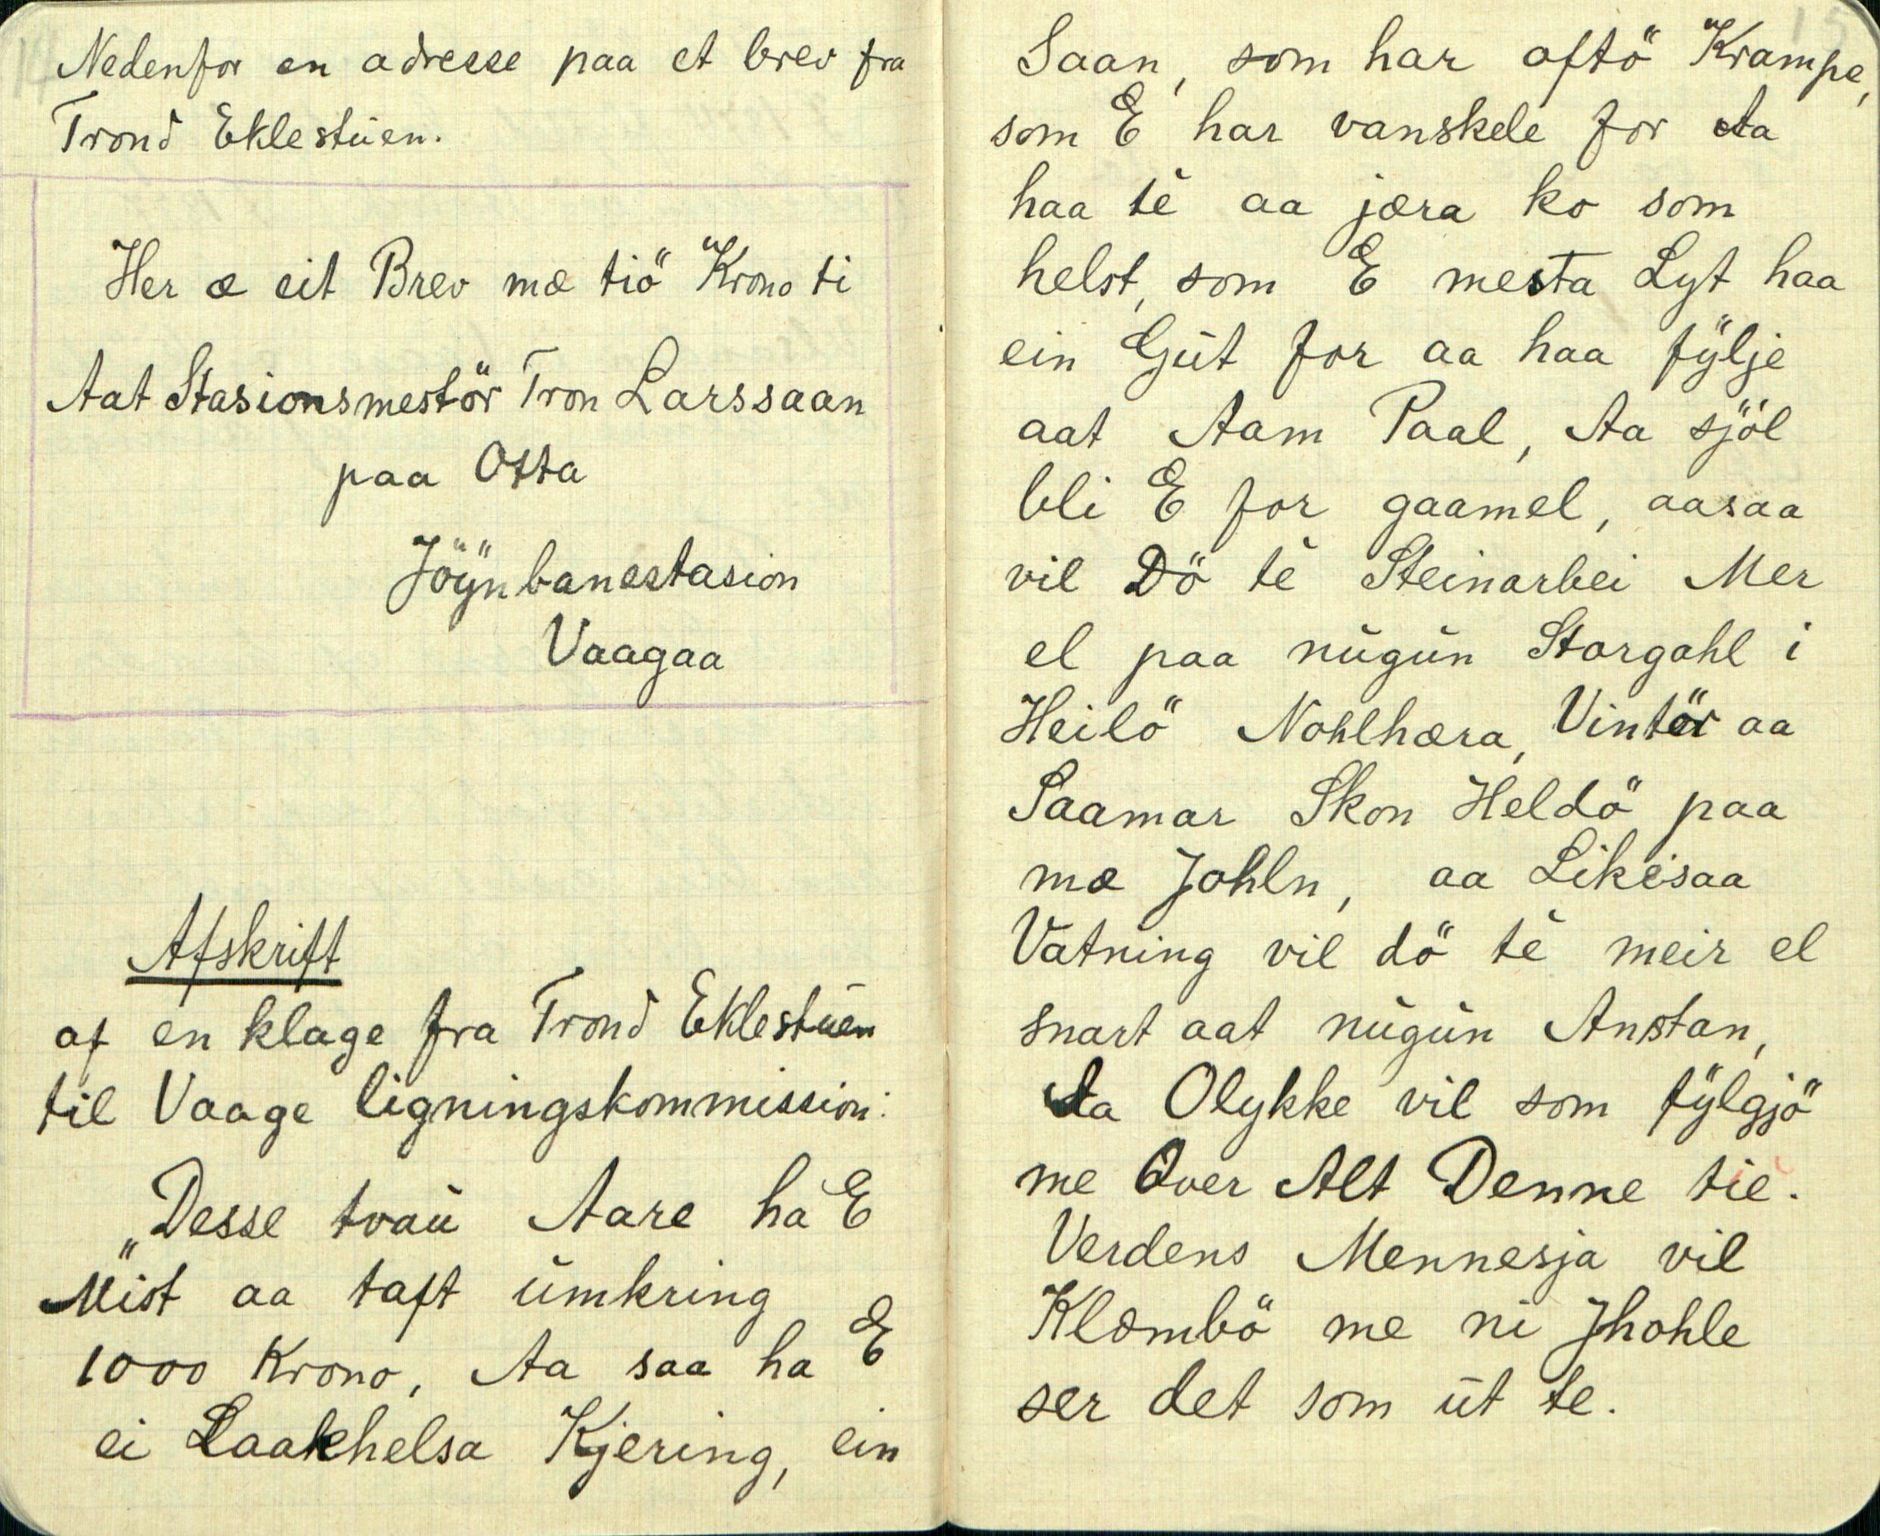 14
Nedenfor en adresse paa et brev fra
Trond Eklestuen.
Her æ eit Brev mæ tiö Krono ti
Aat Stasionsmestör Tron Larssaan
paa Otta
Jöÿnbanestasion
Vaagaa
Afskrift
af en klage fra Trond Eklestuen
til Vaage ligningskommission:
„Desse tvau Aare ha E
Mist aa taft umkring
1000 Krono, Aa saa ha E
ei Laakhelsa Kjering, ein
15
Saan, som har oftö Krampe,
som E har vanskele for Aa
haa tè aa jæra ko som
helst, som E mesta Lyt haa
ein Gut for aa haa fÿlje
aat Aam Paal, Aa sjöl
bli E for gaamel, aasaa
vil Dö tè Steinarbei Mer
el paa nugun Storgahl i
Heilö Nohlhæra, Vintör aa
Saamar Skon Heldö paa
mæ Johln, aa Likesaa
Vatning vil dö tè meir el
snart aat nugun Anstan,
Aa Olykke vil som fÿlgjö
me Over Alt Denne tie.
Verdens Mennesja vil
Klæmbö me ni Jhohle
ser det som ut te.